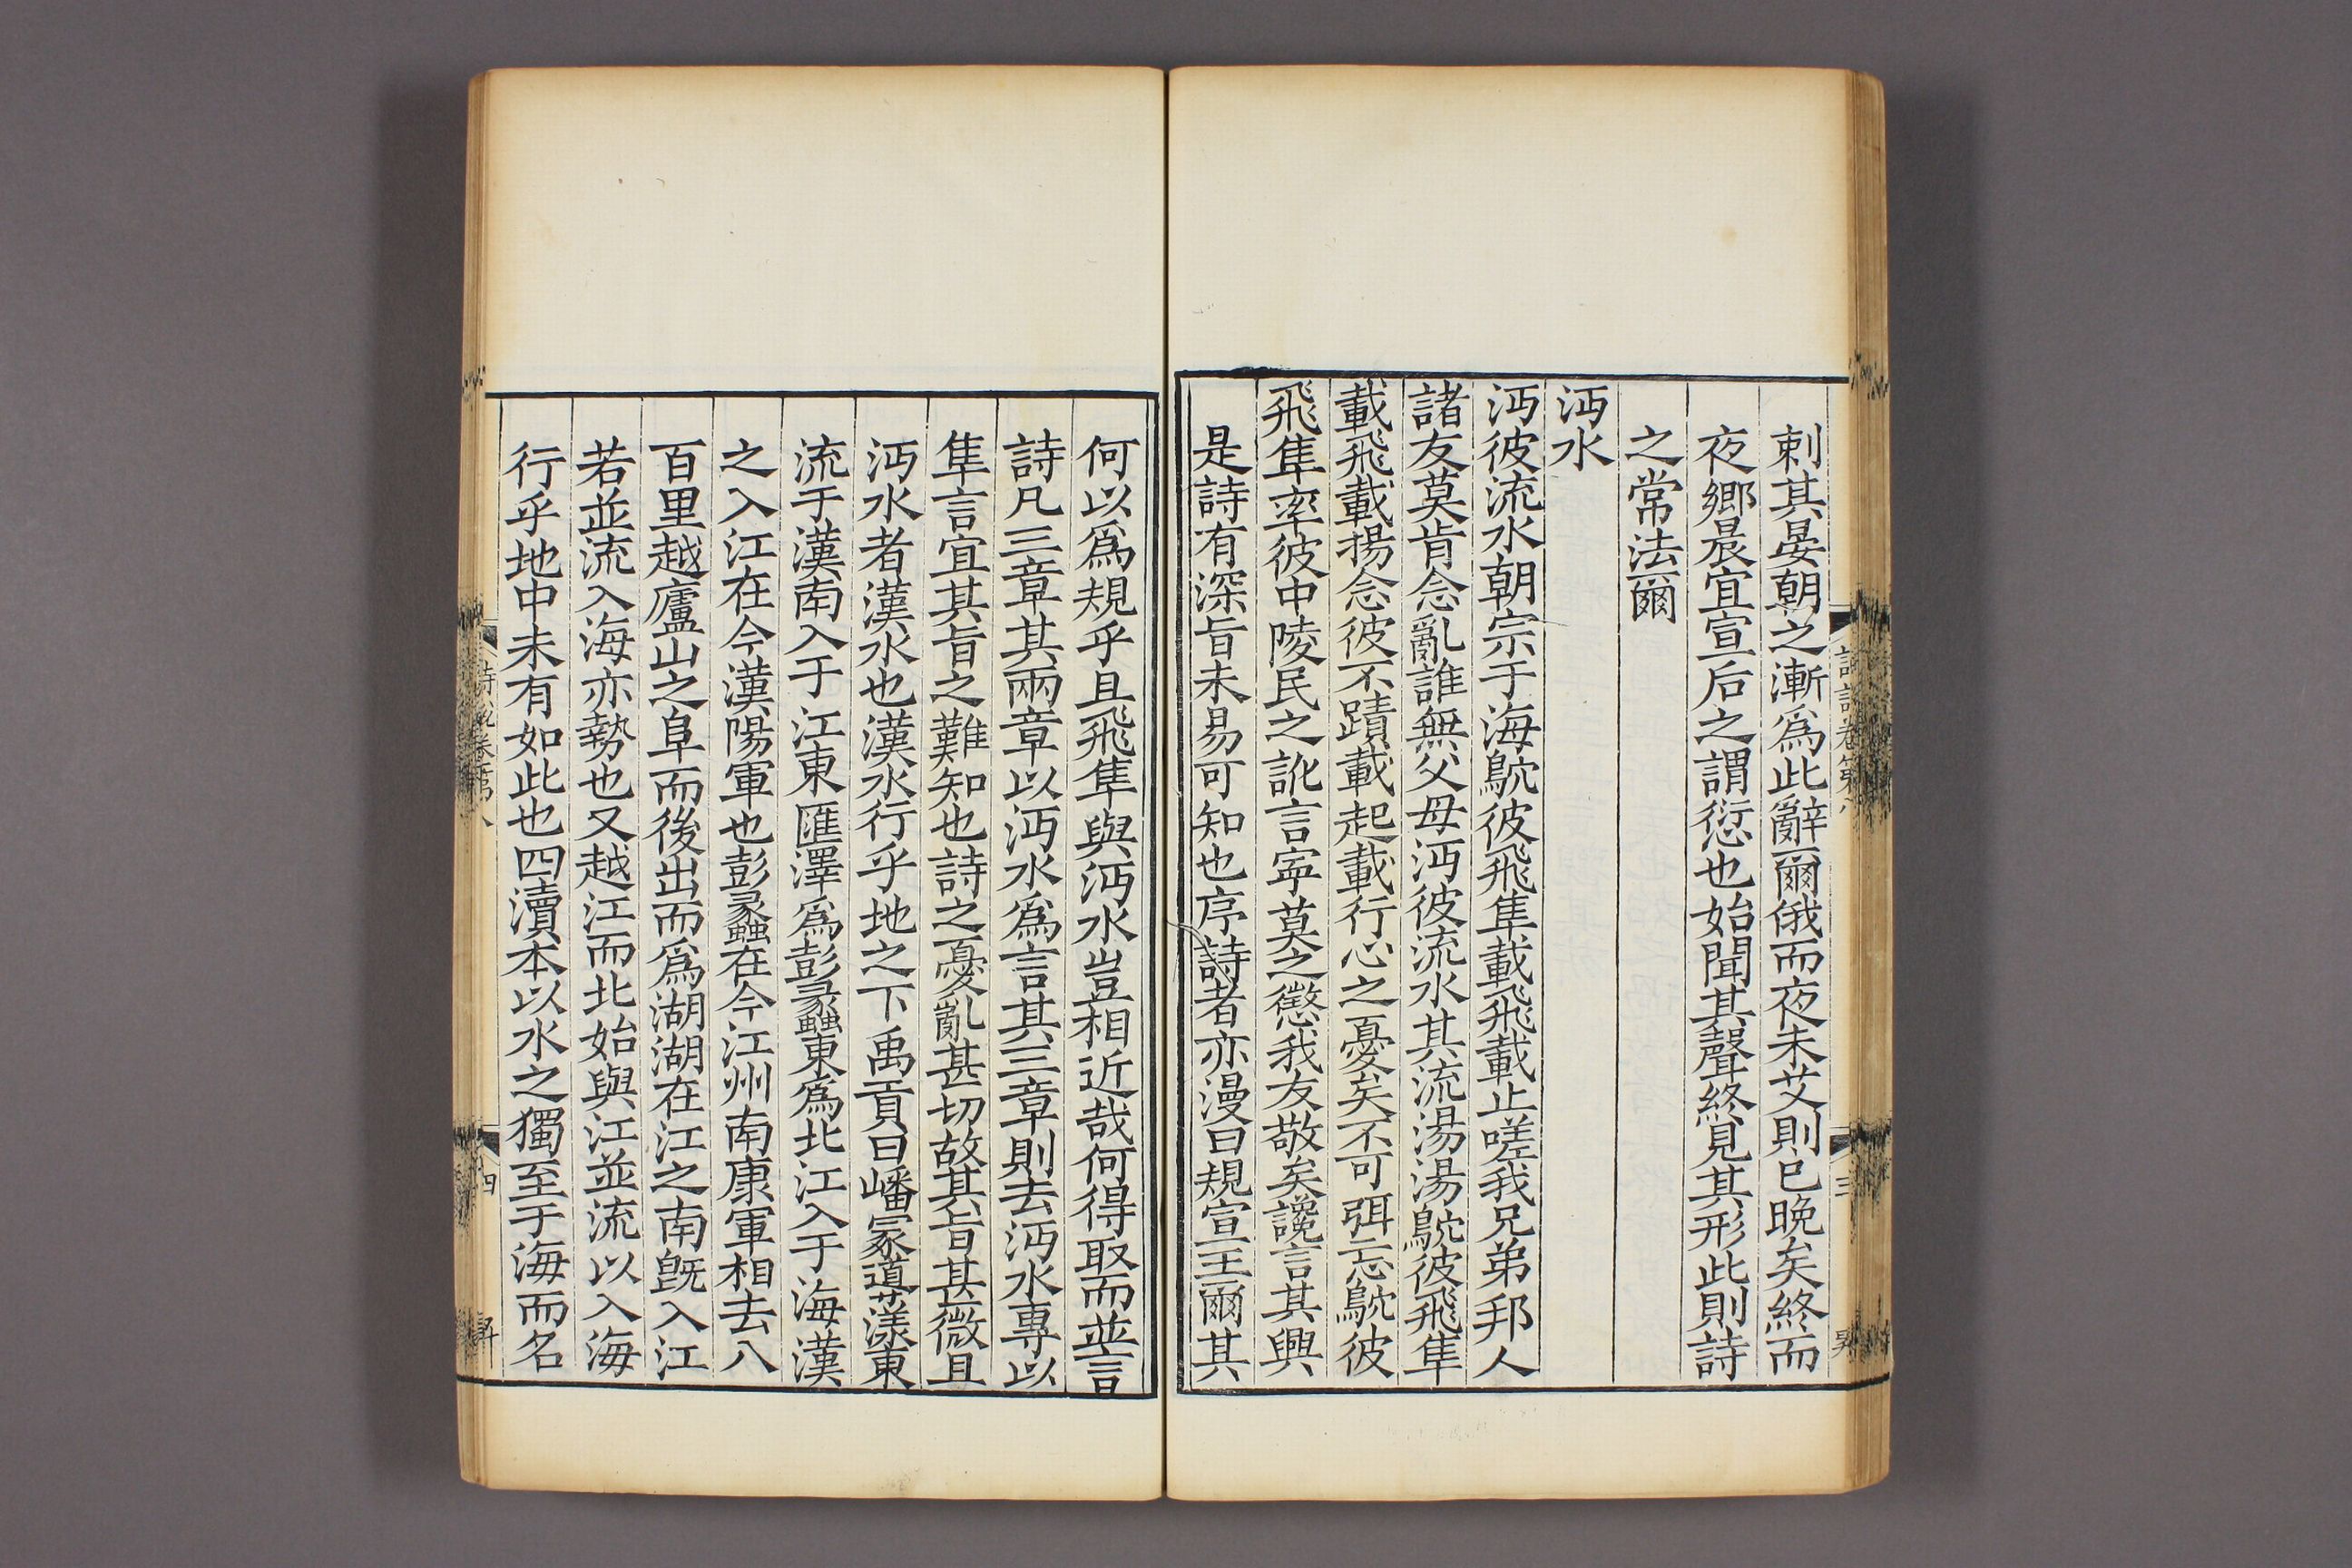 刺其晏朝之漸爲此辭爾俄而夜未艾則已晚矣終而
夜鄉晨宜宣后之謂愆也始聞其聲終見其形此則詩
之常法爾
沔水
沔彼流水朝宗于海鴥彼飛隼載飛載止嗟我兄弟邦人
諸友莫肯念亂誰無父母沔彼流水其流湯湯鴥彼飛隼
載飛載揚念彼不蹟載起載行心之憂矣不可弭忘鴥彼
飛隼率彼中陵民之訛言寧莫之懲我友敬矣讒言其興
是詩有深旨未易可知也序詩者亦漫曰規宣王爾其
何以爲規乎且飛隼與沔水豈相近哉何得取而並言
詩凡三章其兩章以沔水爲言其三章則去沔水專以
隼言宜其旨之難知也詩之憂亂甚切故其旨甚微且
沔水者漢水也漢水行乎地之下禹貢曰嶓冢導漾東
流于漢南入于江東匯澤爲彭蠡東爲北江入于海漢
之入江在今漢陽軍也彭蠡在今江州南康軍相去八
百里越廬山之阜而後出而爲湖湖在江之南旣入江
若並流入海亦勢也又越江而北始與江並流以入海
行乎地中未有如此也四瀆本以水之獨至于海而名
詩說卷第八
三
詩說卷第八
四